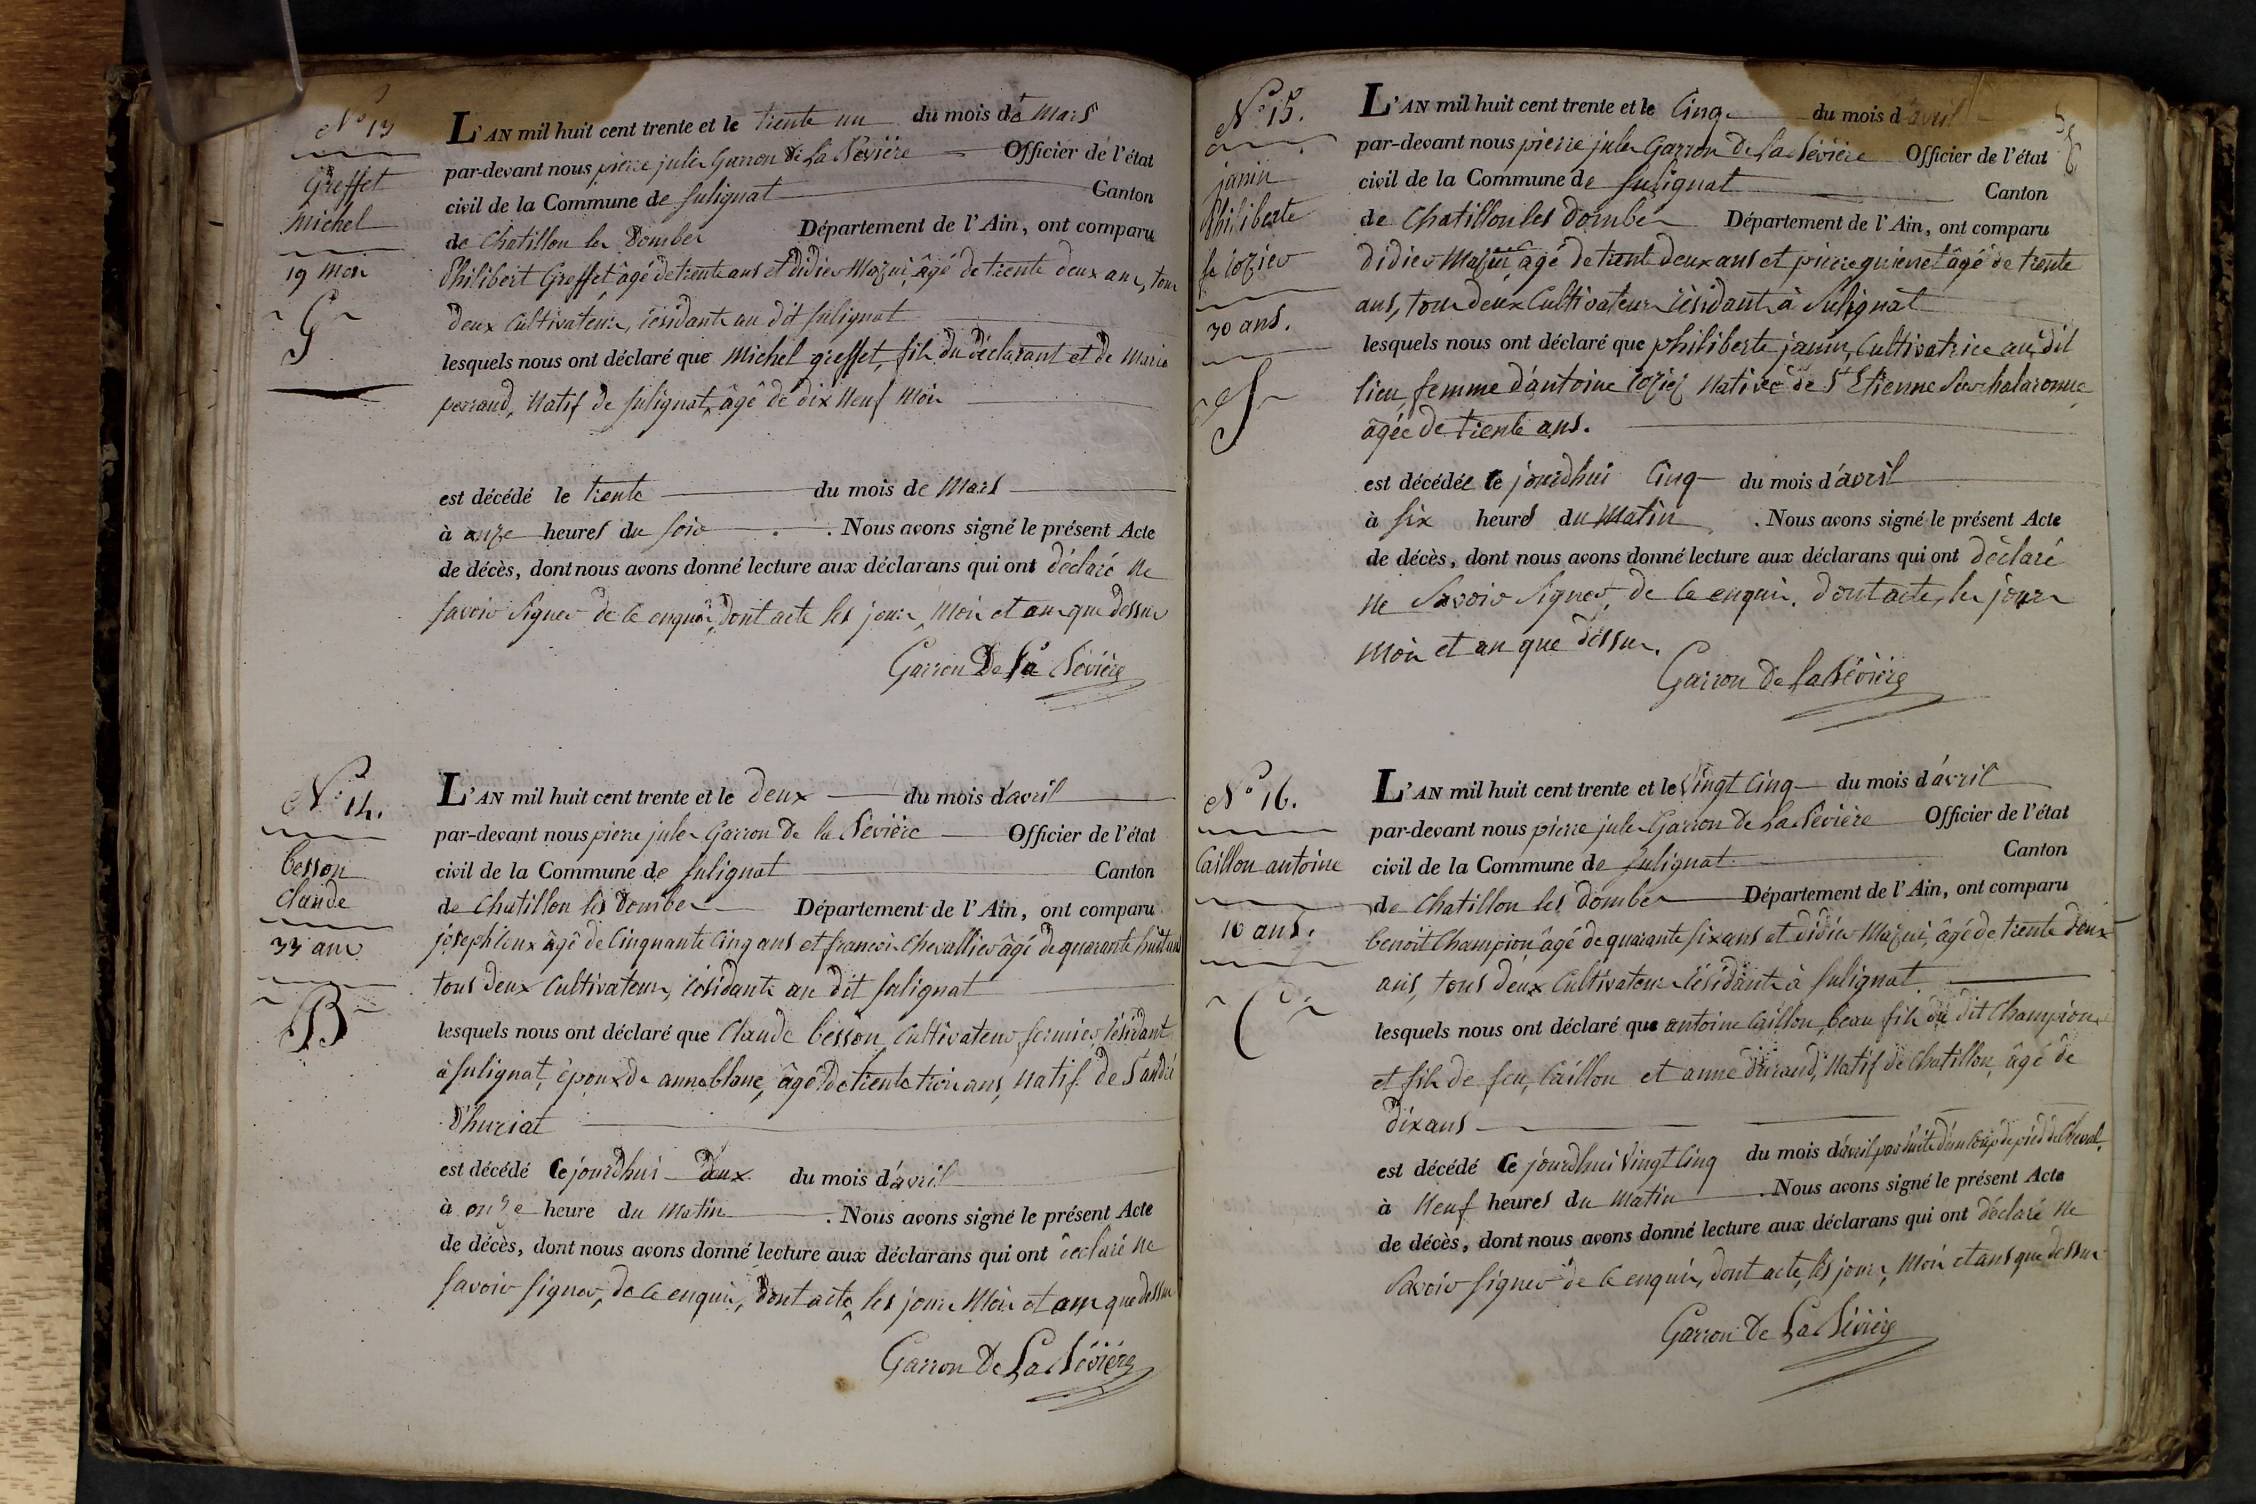 N° 13
Greffet
Michel
19 Mois
G
L'AN mil huit cent trente et le trente un du mois de Mars
par-devant nous pierre jules Garron De La Sévière Officier de l'état
civil de la Commune de Sulignat Canton
de Chatillon les Dombes Département de l'Ain, ont comparu
Philibert Greffet, âgé de trente ans et Didier Mazui, âgé de trente deux ans, tous
deux Cultivateurs, résidants au dit Sulignat
lesquels nous ont déclaré que Michel greffet, fils du déclarant et de Marie
perraud, Natif de Sulignat, âgé de dix Neuf Mois
est décédé le trente du mois de Mars
à onze heures du Soir . Nous avons signé le présent Acte
de décès, dont nous avons donné lecture aux déclarans qui ont déclaré ne
savoir signer de ce enquis, dont acte les jour, Mois et an que dessus
Garron De La Sévière
N° 14.
besson
Claude
33 ans
B
L'AN mil huit cent trente et le deux du mois d'avril
par-devant nous pierre jules Garron De la Sévière Officier de l'état
civil de la Commune de Sulignat Canton
de Chatillon les Dombes Département de l'Ain, ont comparu
joseph âgé de Cinquante Cinq ans et francois Chevallier âgé de quarante huit ans
tous deux Cultivateurs, résidants au dit Sulignat
lesquels nous ont déclaré que Claude besson Cultivateur fermier résidant
à Sulignat, époux de anne blanc, âgé de trente trois ans, Natif de St andré
D'huriat
est décédé Ce jourdhui deux du mois d'avril
à onze heure du Matin . Nous avons signé le présent Acte
de décès, dont nous avons donné lecture aux déclarans qui ont déclaré ne
savoir signer, de ce enquis, dont acte, les jour Mois et an que dessus
Garron De La Sévière
N° 15.
janin
Philiberte
fe rozier
30 ans.
J
L'AN mil huit cent trente et le Cinq du mois d'avril
par-devant nous pierre jules Garron De La Sévière Officier de l'état
civil de la Commune de Sulignat Canton
de Chatillon les Dombes Département de l'Ain, ont comparu
didier Mazui âgé de trente deux ans et pierre âgé de trente
ans, tous deux Cultivateurs résidants à Sulignat
lesquels nous ont déclaré que philiberte janin, Cultivatrice au dit
lieu, femme d'antoine Native de St Etienne Sur chalaronne
âgée de trente ans.
est décédée ce jourdhui Cinq du mois d'avril
à Six heures du Matin . Nous avons signé le présent Acte
de décès, dont nous avons donné lecture aux déclarans qui ont déclaré
ne Savoir Signer, de ce enquis, dont acte, les jour
Mois et an que dessus.
Garron De La Sévière
N° 16.
Caillon antoine
10 ans.
C
L'AN mil huit cent trente et le Vingt Cinq du mois d'avril
par-devant nous pierre jules Garron De La Sévière Officier de l'état
civil de la Commune de Sulignat Canton
de Chatillon les Dombes Département de l'Ain, ont comparu
benoit Champion, âgé de quarante six ans et didier Mazui, âgé de trente deux
ans, tous deux Cultivateurs résidants à Sulignat
lesquels nous ont déclaré que antoine Caillon, beau fils du dit Champion
et fils de feu, Caillon et anne durand, Natif de Chatillon, âgé de
dix ans
est décédé Ce jourdhui Vingt Cinq du mois d'avril par suite d'un Coup de pied de Cheval.
à Neuf heures du Matin . Nous avons signé le présent Acte
de décès, dont nous avons donné lecture aux déclarans qui ont déclaré ne
Savoir signer de ce enquis, dont acte, les jour, Mois et an que dessus
Garron De La Sévière